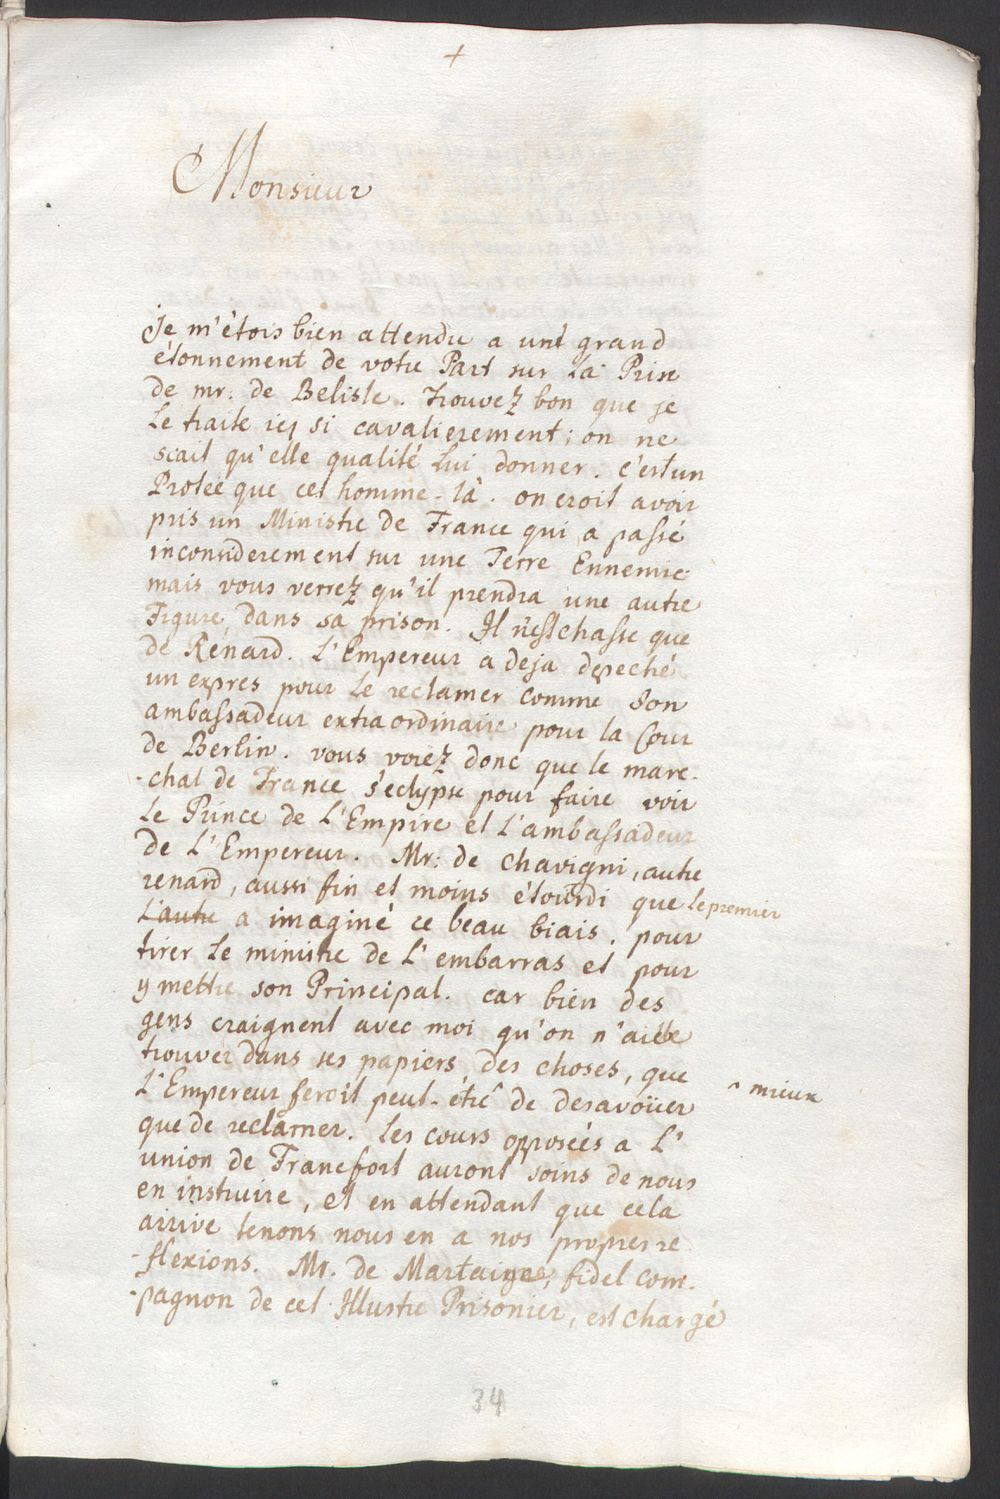 +
Monsieur
Je m'étois bien attendu a une grand
étonnement de votre Part sur La Prise
de mr: de Belisle. Trouvez bon que je
Le traite icy si cavalierement; on ne
scait qu'elle qualité Lui donner. c'est un
Protée que cet homme-là. on croit avoir
pris un Ministre de France qui a passé
inconsiderement sur une Terre Ennemie
mais vous verrez qu'il prendra une autre
Figure dans sa prison. Il n'est chasse que
de Renard. L'Empereur a deja depeché
un expres pour Le reclamer comme Son
ambassadeur extraordinaire pour la Cour
de Berlin. vous voiez donc que le mare-
-chal de France s'eclypse pour faire voir
Le Prince de L'Empire et L'ambassadeur
de L'Empereur. Mr: de Chavigni, autre
renard, aussi fin et moins étourdi que le premier
L'autre a imaginé ce beau biais. pour
tirer Le ministre de L'embarras et pour
y mettre son Principal. car bien des
gens craignent avec moi qu'on n'aille
trouver dans ses papiers des choses, que
L'Empereur feroit peut-étre de desavoüer ^ mieux
que de reclamer. Les cours opposées a L'
union de Francfort auront soins de nous
en instruire, et en attendant que cela
arrive tenons nous en a nos propres re
-flexions. Mr. de Martaignes, fidel com-
-pagnon de cet Illustre Prisonier, est chargé
34